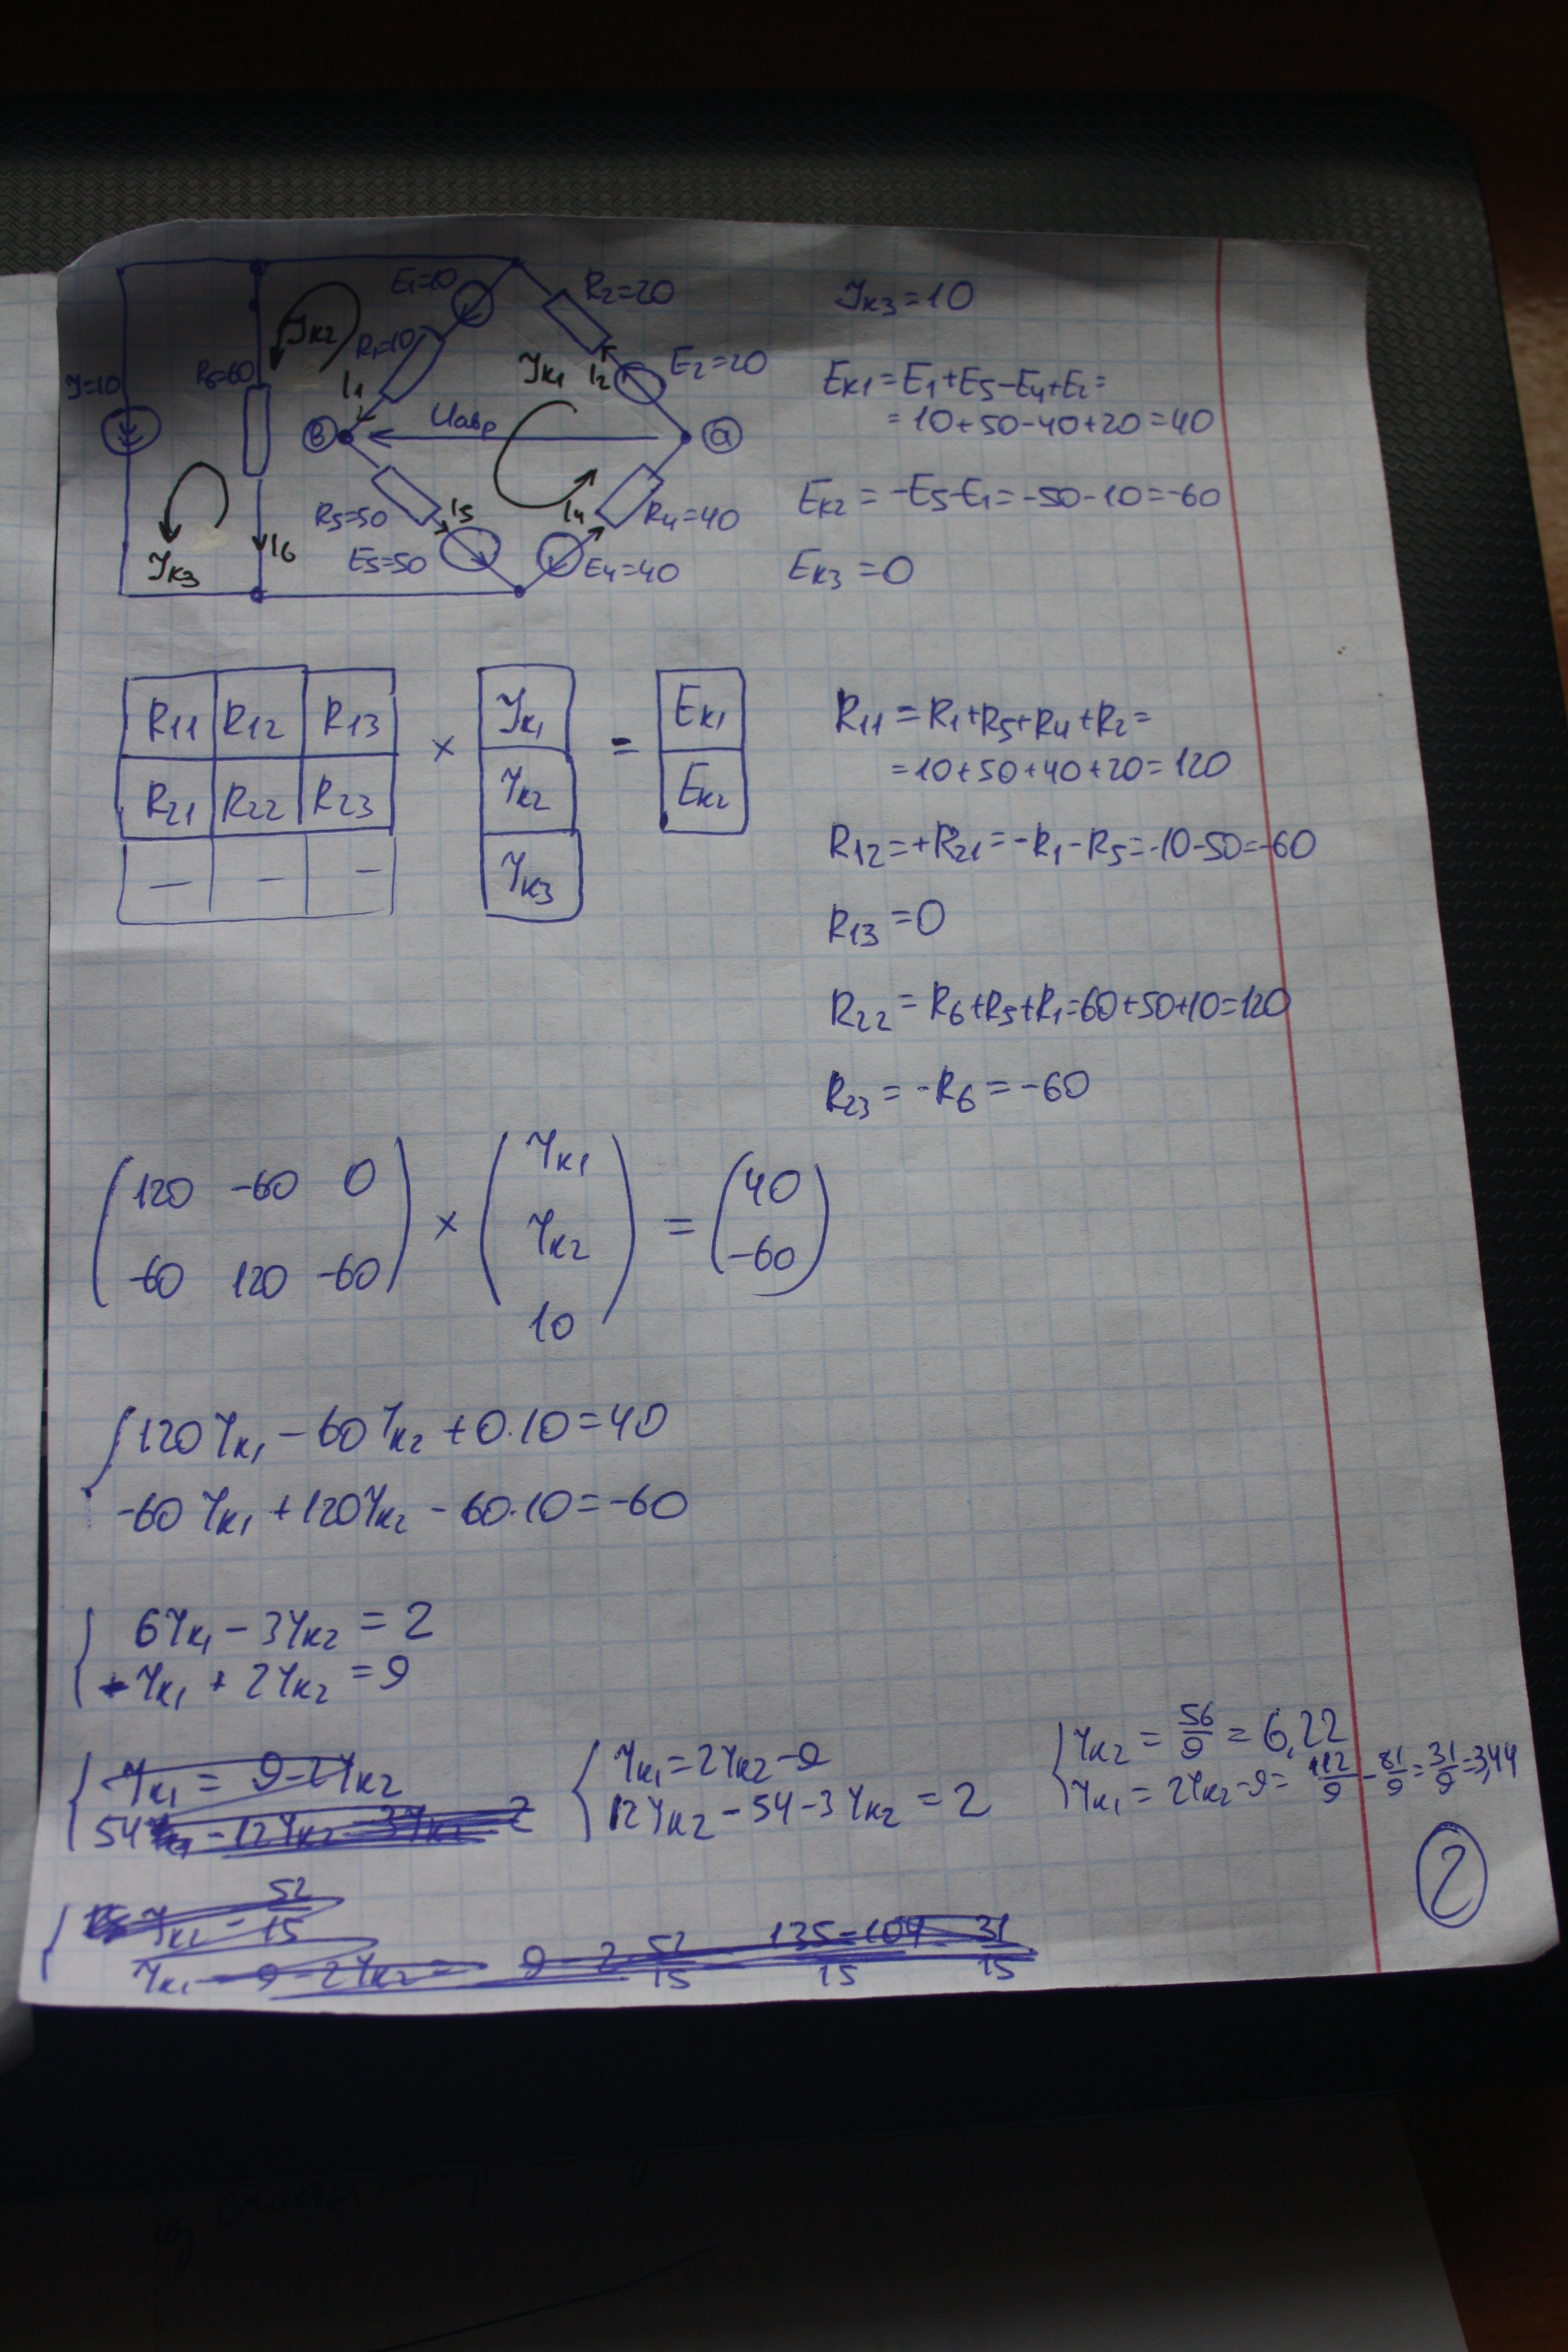 E1=10
R2=20
Jк2
R1=10
R6=60
J=10
I1
Jк1
I2
E2=20
в
Uавр
а
R5=50
I5
I4
R4=40
E5=50
E4=40
Jк3
I6
Jк3=10
Eк1=E1+E5-E4+E2=
=10+50-40+20=40
Eк2=-E5-E1=-50-10=-60
Eк3=0
R11 R12 R13
R21 R22 R23
— — —
×
Jк1
Jк2
Jк3
=
Eк1
Eк2
R11=R1+R5+R4+R2=
=10+50+40+20=120
R12=+R21=-R1-R5=-10-50=-60
R13=0
R22=R6+R5+R1=60+50+10=120
R23=-R6=-60
120 -60 0
-60 120 -60
×
Jк1
Jк2
10
=
40
-60
120Jк1-60Jк2+0·10=40
-60Jк1+120Jк2-60·10=-60
6Jк1-3Jк2=2
-Jк1+2Jк2=9
Jк1=9-2Jк2
Jк1=2Jк2-9
12Jк2-54-3Jк2=2
Jк2=56/9=6,22
Jк1=2Jк2-9=112/9-81/9=31/9=3,44
Jк1=9-2Jк2=9-2·52/15=135-104/15=31/15
2